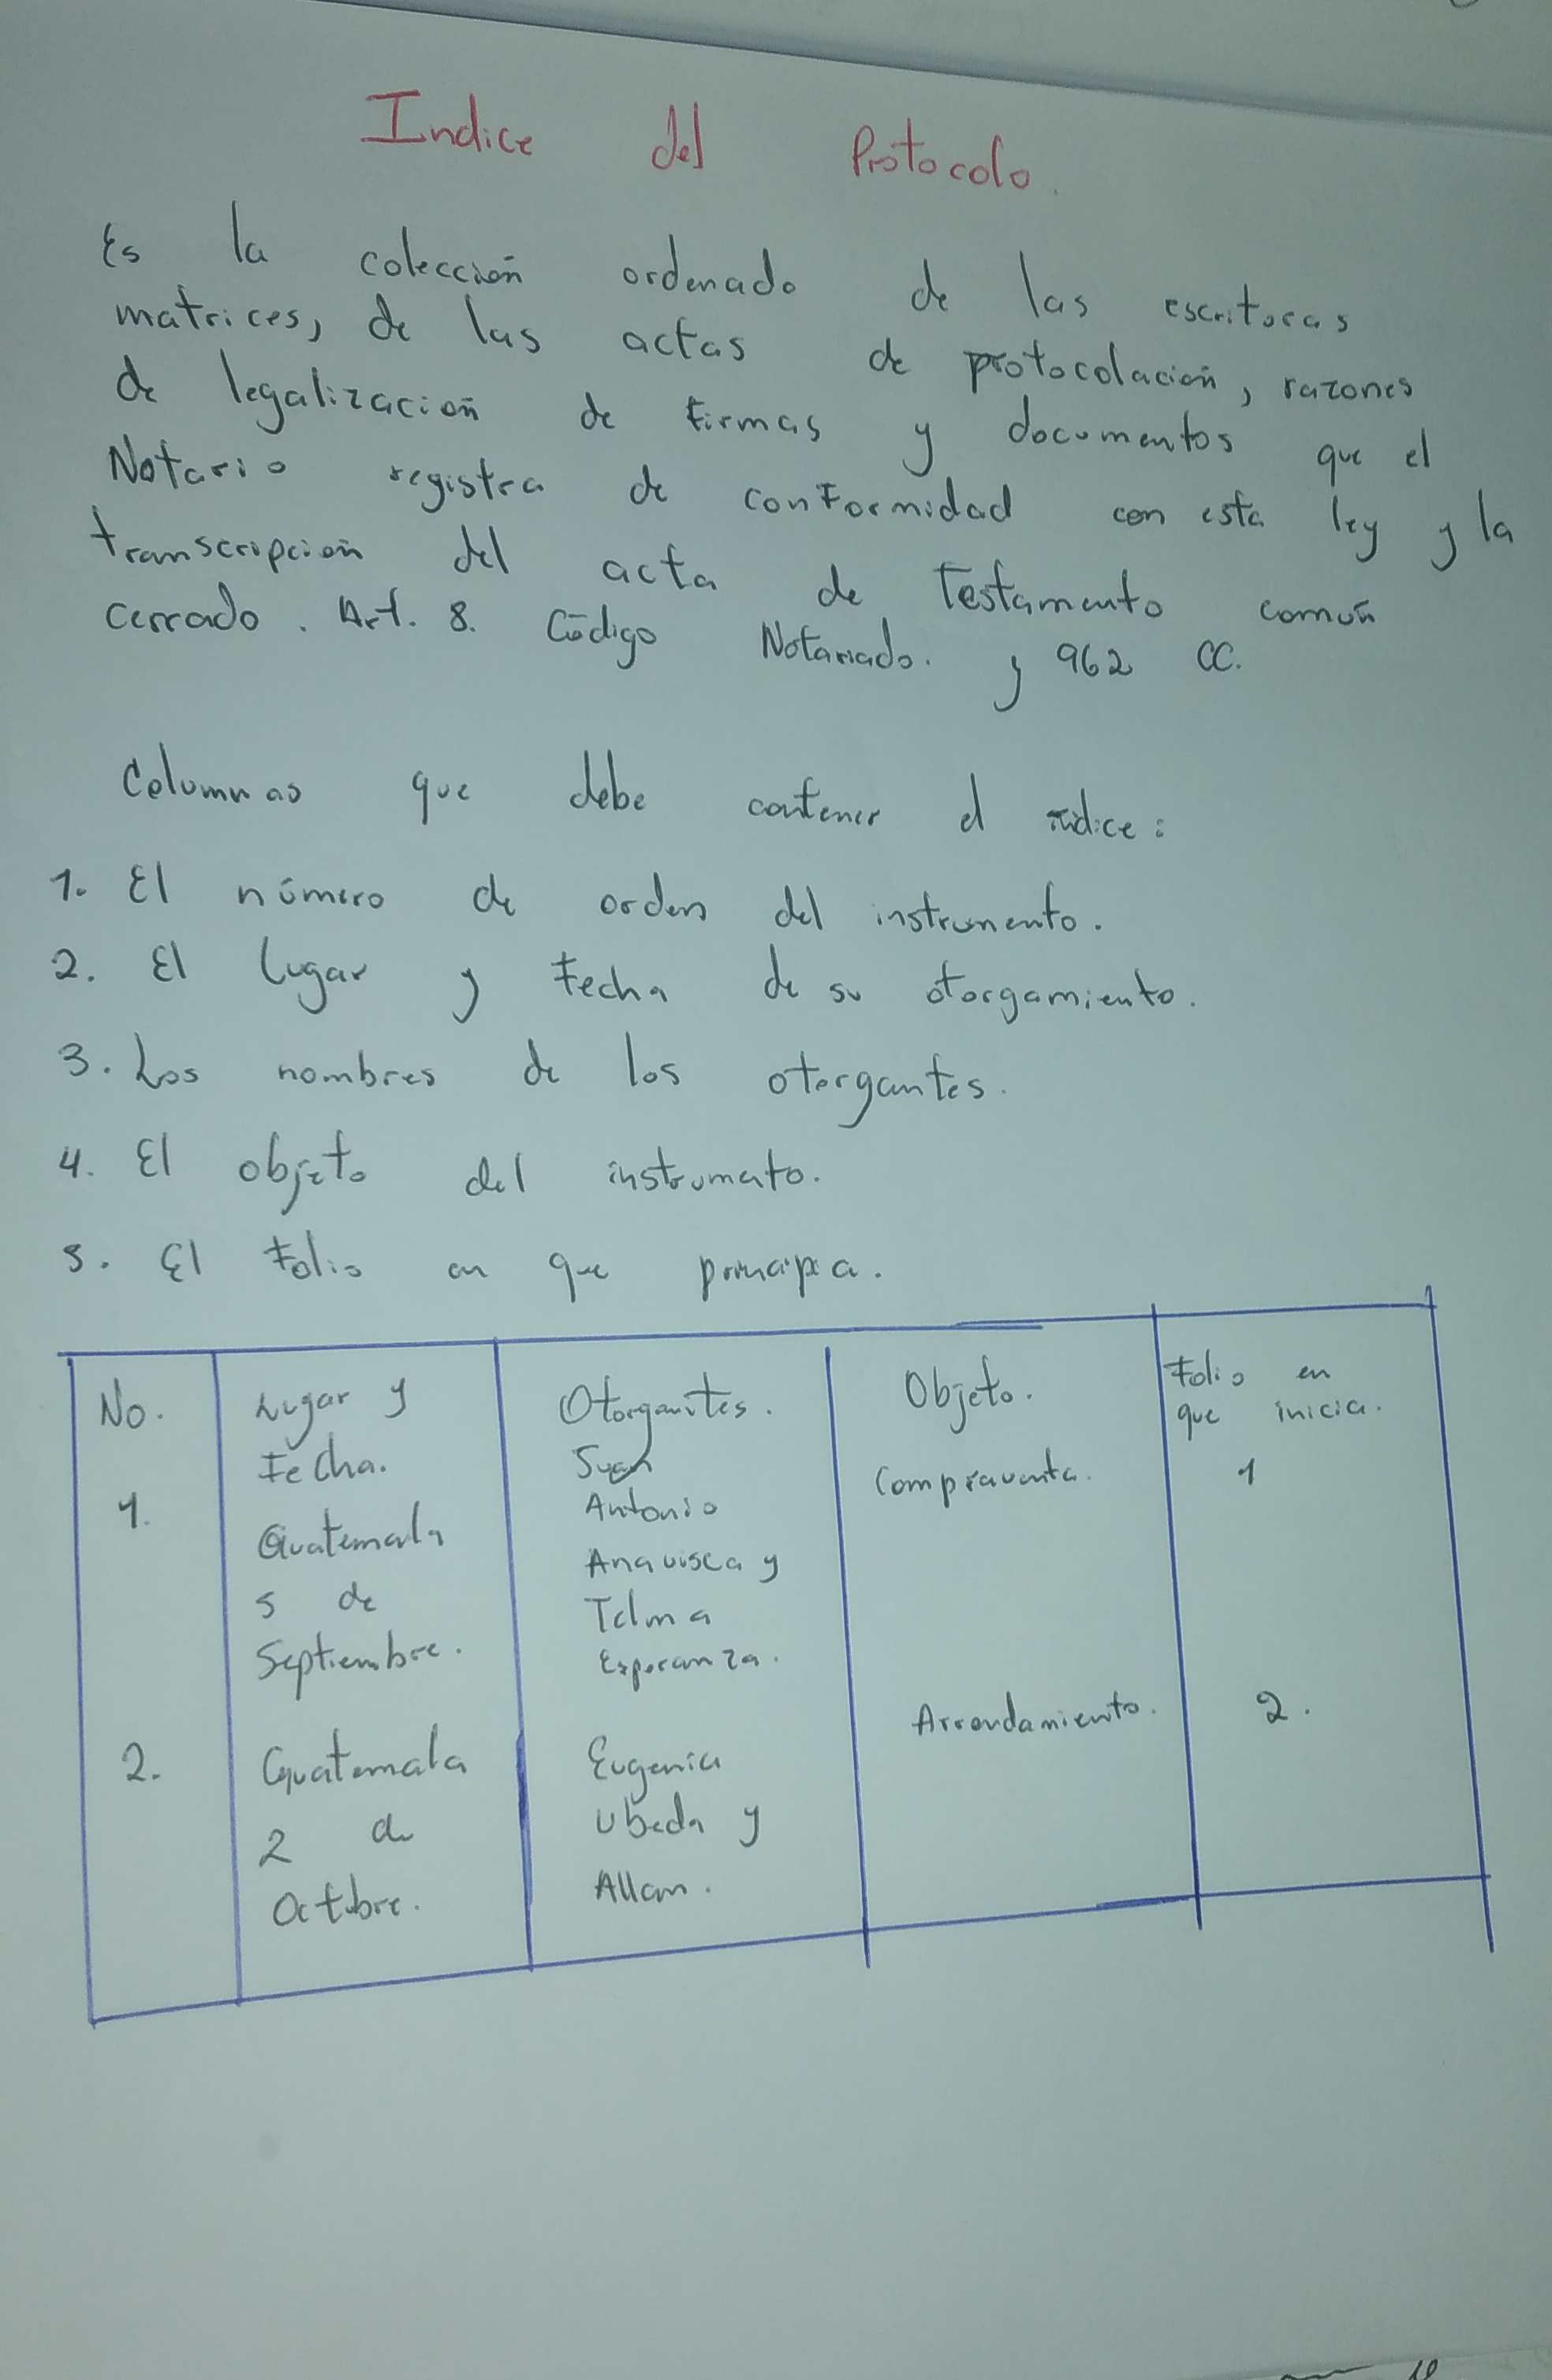 Indice del Protocolo.
Es la colección ordenado de las escrituras
matrices, de las actas de protocolación, razones
de legalización de firmas y documentos que el
Notario registra de conformidad con esta ley y la
transcripción del acta de Testamento común
cerrado. Art. 8. Código Notariado. y 962 CC.
Columnas que debe contener el índice:
1. El número de orden del instrumento.
2. El Lugar y Fecha de su otorgamiento.
3. Los nombres de los otorgantes.
4. El objeto del instrumento.
5. El Folio en que principia.
No.
1.
2.
Lugar y
Fecha.
Guatemala
5 de
Septiembre.
Guatemala
2 de
Octubre.
Otorgantes.
Juan
Antonio
Anavisca y
Telma
Esperanza.
Eugenia
Ubeda y
Allan.
Objeto.
Compraventa.
Arrendamiento.
Folio en
que inicia.
1
2.